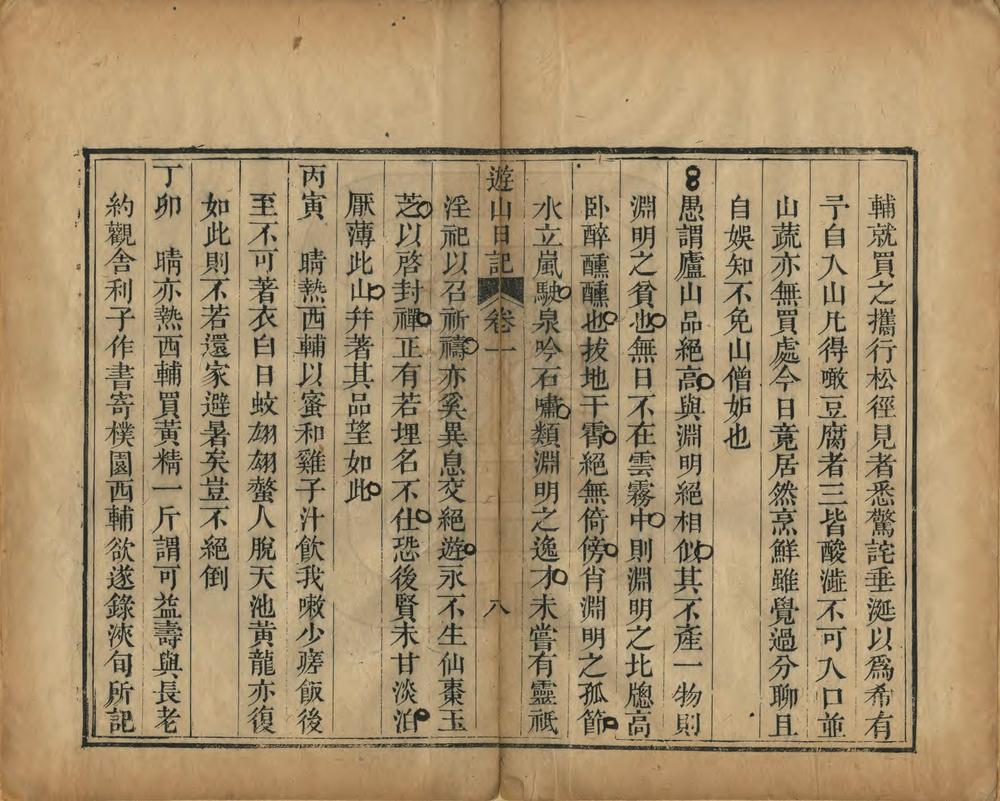 輔就買之攜行松徑見者悉驚詫垂涎以爲希有
予自入山凡得噉豆腐者三皆酸澁不可入口並
山蔬亦無買處今日竟居然烹鮮雖覺過分聊且
自娛知不免山僧妬也
愚謂廬山品絕高與淵明絕相似其不產一物則
淵明之貧也無日不在雲霧中則淵明之北牕高
卧醉醺醺也拔地干霄絕無倚傍肖淵明之孤節
水立嵐駛泉吟石嘯類淵明之逸才未嘗有靈祗
遊山日記 卷一 八
淫祀以召祈禱亦奚異息交絕遊永不生仙棗玉
芝以啓封禪正有若埋名不仕恐後賢未甘淡泊
厭薄此山幷著其品望如此
丙寅 晴熱西輔以蜜和雞子汁飲我嗽少瘥飯後
至不可著衣白日蚊翃翃螫人脫天池黃龍亦復
如此則不若還家避暑矣豈不絕倒
丁卯 晴亦熱西輔買黃精一斤謂可益壽與長老
約觀舍利子作書寄樸園西輔欲遂錄浹旬所記